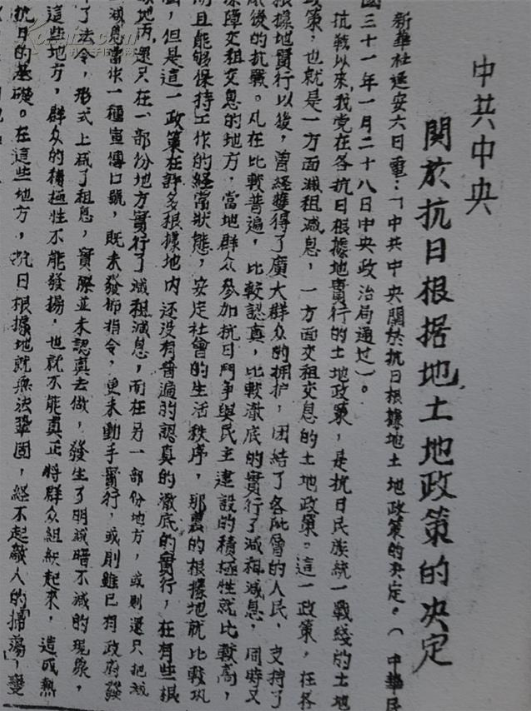 中共中央
關於抗日根据地土地政策的决定
新華社延安六日電：「中共中央關於抗日根據地土地政策的決定。（中華民
國三十一年一月二十八日中央政治局通过）。
抗戰以來，我党在各抗日根據地實行的土地政策，是抗日民族統一戰綫的土地
政策，也就是一方面減租減息，一方面交租交息的土地政策。這一政策，在各
根據地實行以後，曾經獲得了廣大群众的拥护，团結了各階層的人民，支持了
敵後的抗戰。凡在比較普遍，比較認真，比較澈底的實行了減租減息，同時又
保障交租交息的地方，當地群众參加抗日鬥争與民主建設的積極性就比較高，
而且能够保持工作的經常狀態，安定社會的生活秩序，那裏的根據地就比較巩
固，但是這一政策在許多根據地内还没有普遍的認真的澈底的實行，在有些根
據地内，還只在一部份地方實行了減租減息，而在另一部份地方，或則還只把減
租減息當作一種宣傳口號，既未發佈指令，更未動手實行，或則雖已有政府發
佈了法令，形式上减了租息，實際並未認真去做，發生了明減暗不減的現象，
在這些地方，群众的積極性不能發揚，也就不能真正將群众組織起來，造成熱
烈抗日的基礎。在這些地方，抗日根據地就無法巩固，經不起敵人的「掃蕩」，變